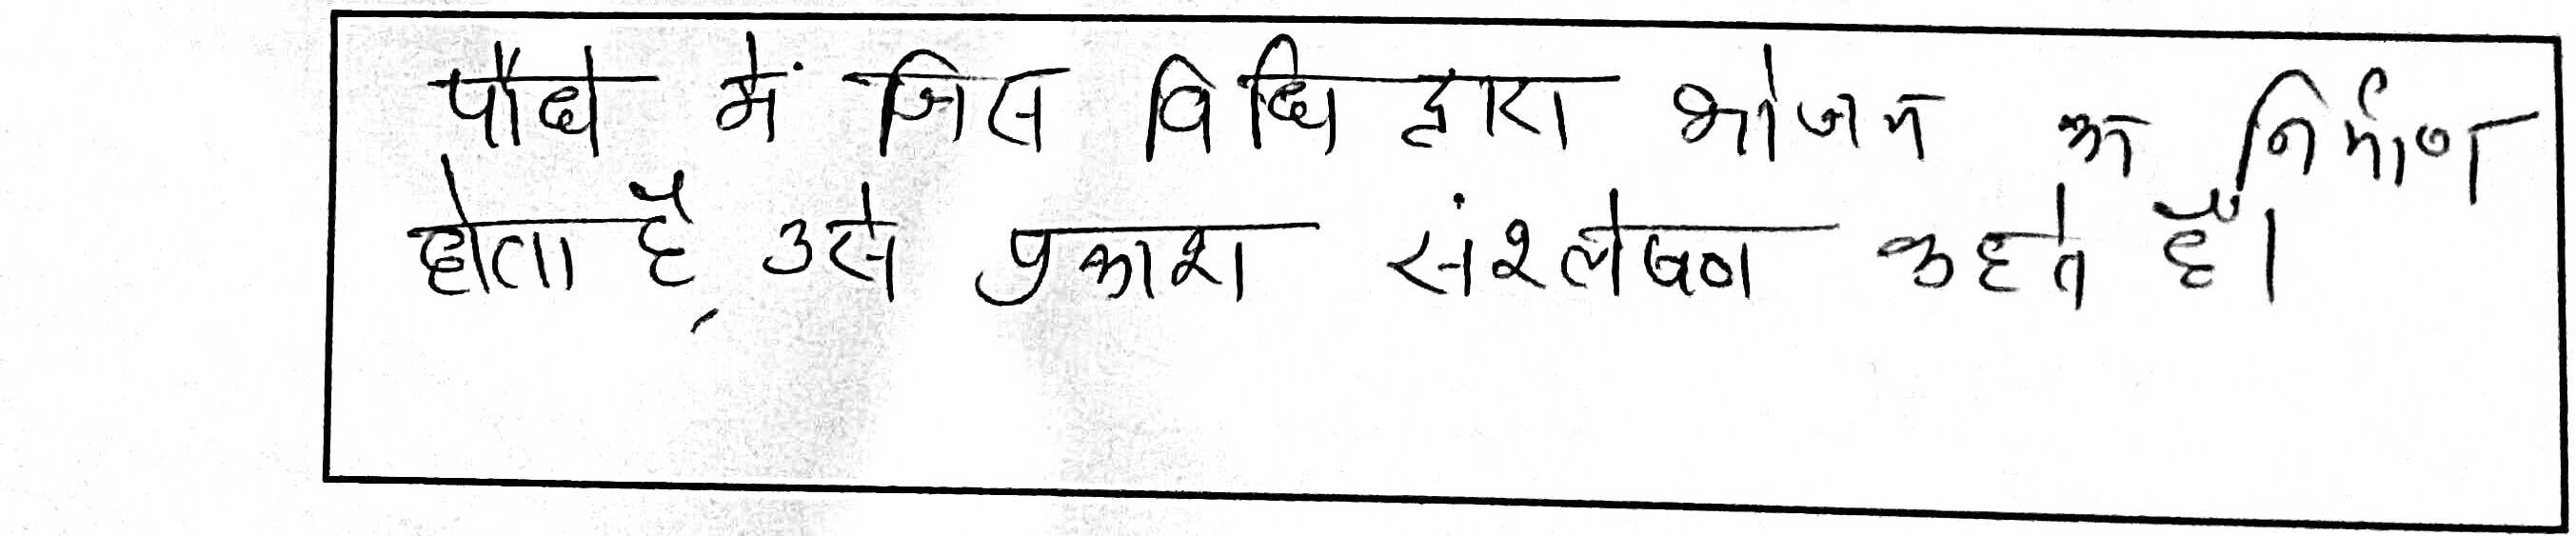 पौधे में जिस विधि द्वारा भोजन का निर्माण
होता है, उसे प्रकाश संश्लेषण कहते हैं।